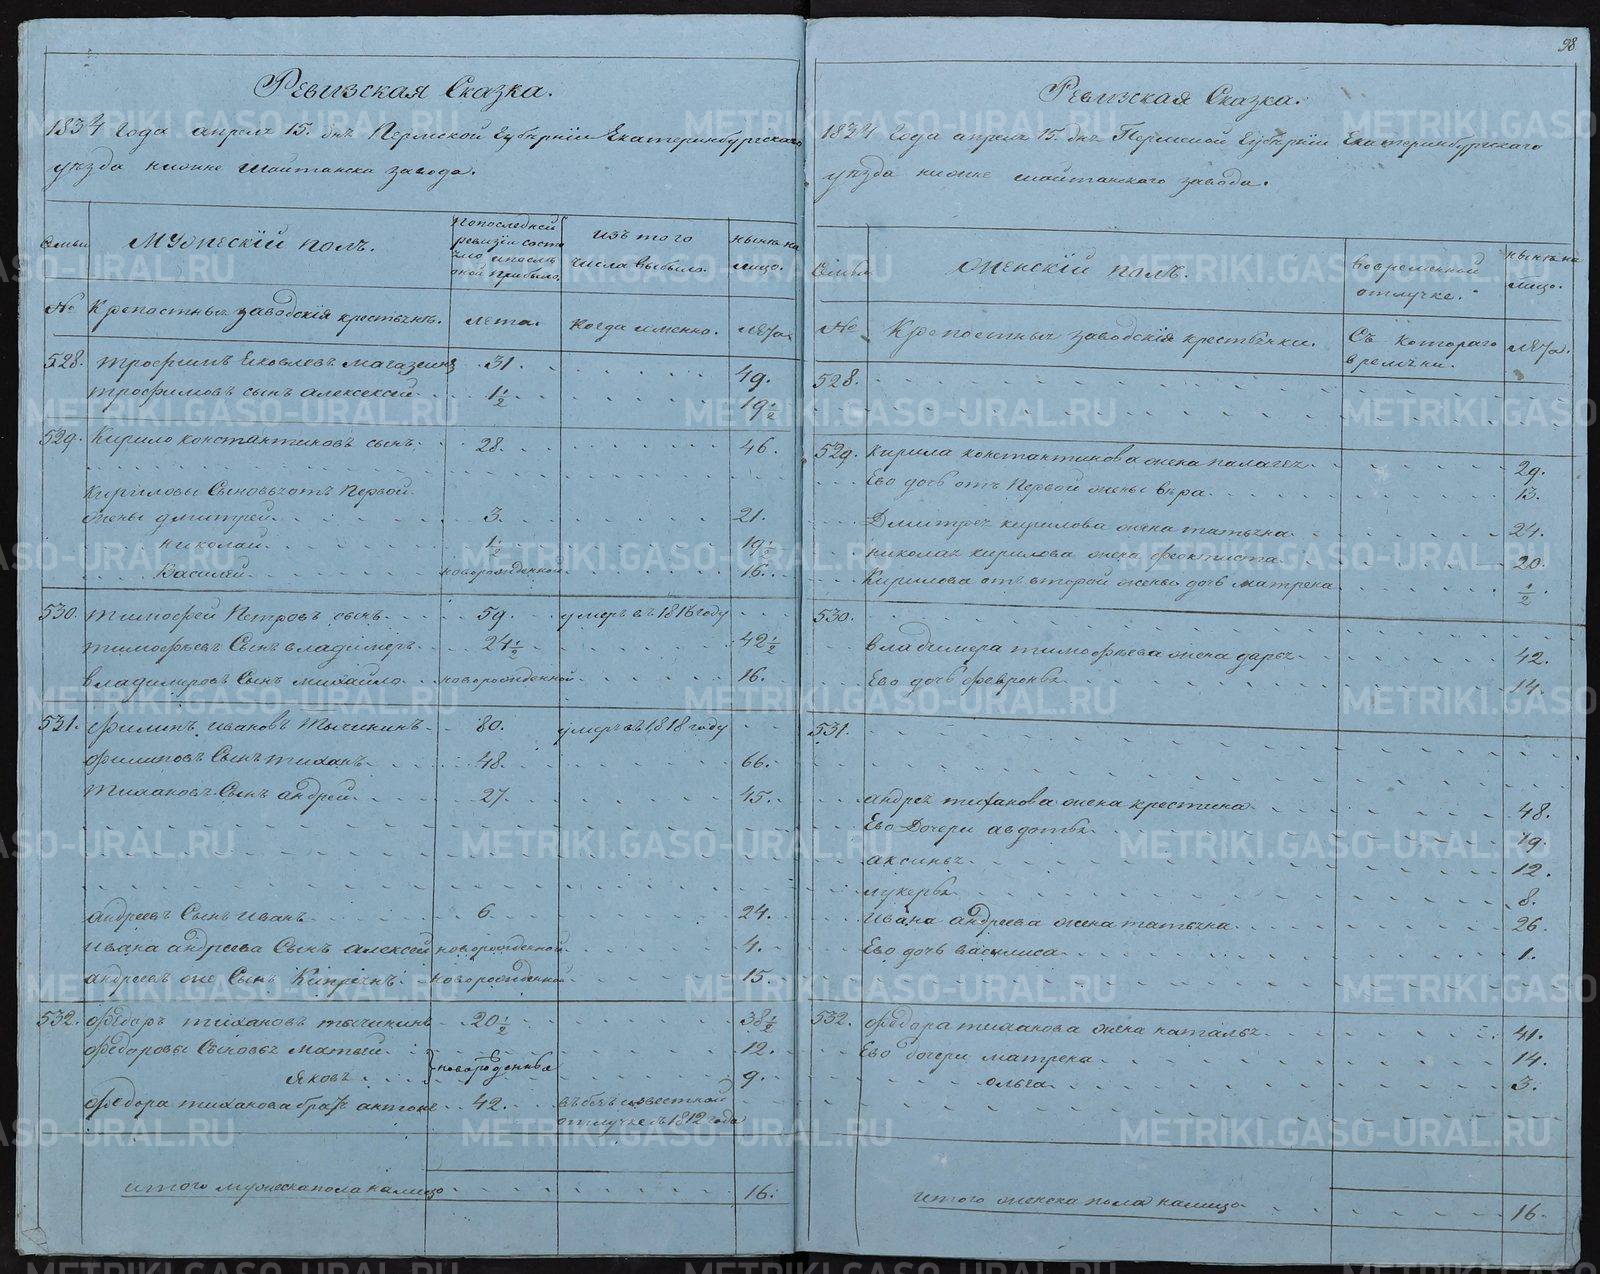 Ревизская Сказка.
1834 Года апреля 15. дня Пермской Губернии Екатеринбургскаго
уезда нижне шайтанска завода.
Семьи
Мужеский полъ.
Попоследней ревизiи состояло ипосле оной прибыло.
изъ того числа выбыло.
ныне на лицо.
№
Крепостныя заводскiя крестьяне.
лета.
Когда именно.
лета
528. Трофимъ Яковлевъ магазеинъ 31. 49.
Трофимовъ сынъ алексей 1½ 19½
529. Кирило константиновъ сынъ. 28. 46.
Кириловы Сыновья отъ Первой
жены дмитрей 3. 21.
николай 1½ 19½
Василей новорожденной 16.
530. Тимофей Петровъ сынъ 59. умеръ въ 1816 году
тимофеевъ Сынъ владимиръ 24½ 42½
владимеровъ Сынъ михайло новорожденной 16.
531. Филипъ ивановъ Тычикинъ 80. умеръ въ 1818 году
Филиповъ Сынъ тиханъ 48. 66.
Тихановъ Сынъ андрей 27. 45.
андреевъ Сынъ иванъ 6. 24.
ивана андреева Сынъ алексей новорожденной 4.
андреевъ же Сынъ Кипрiянъ новорожденной 15.
532. Федоръ тихановъ тычикинъ 20½ 38½
Федоровы Сыновья матвей новорожденныя 12.
яковъ 9.
Федора тиханова братъ антонъ 42. въ безъизвестной
отлучке съ 1812 года
итого мужеска пола налицо 16.
98
Ревизская Сказка.
1834 Года апреля 15. дня Пермской Губернии Екатеринбургскаго
уезда нижне шайтанскаго завода.
Семьи
Женскiй полъ.
вовременной отлучке.
ныне на лицо.
№
Крепостныя заводскiя крестьянки.
Съ котораго времени.
лета.
528.
529. Кирила константинова жена палагея 29.
Ево дочь отъ Первой жены вера 13.
Дмитрея кирилова жена татьяна 24.
николая кирилова жена феоктиста 20.
Кирилова отъ второй жены дочь матрена ½.
530.
владимера тимофеева жена дарья 42.
Ево дочь февронья 14.
531.
андрея тиханова жена крестина 48.
Ево Дочери авдотья 19.
аксинья 12.
лукерья 8.
ивана андреева жена татьяна 26.
Ево дочь василиса 1.
532. Федора тиханова жена наталья 41.
Ево дочери матрена 14.
ольга 3.
итого женска пола налицо 16.
METRIKI.GASO-URAL.RU